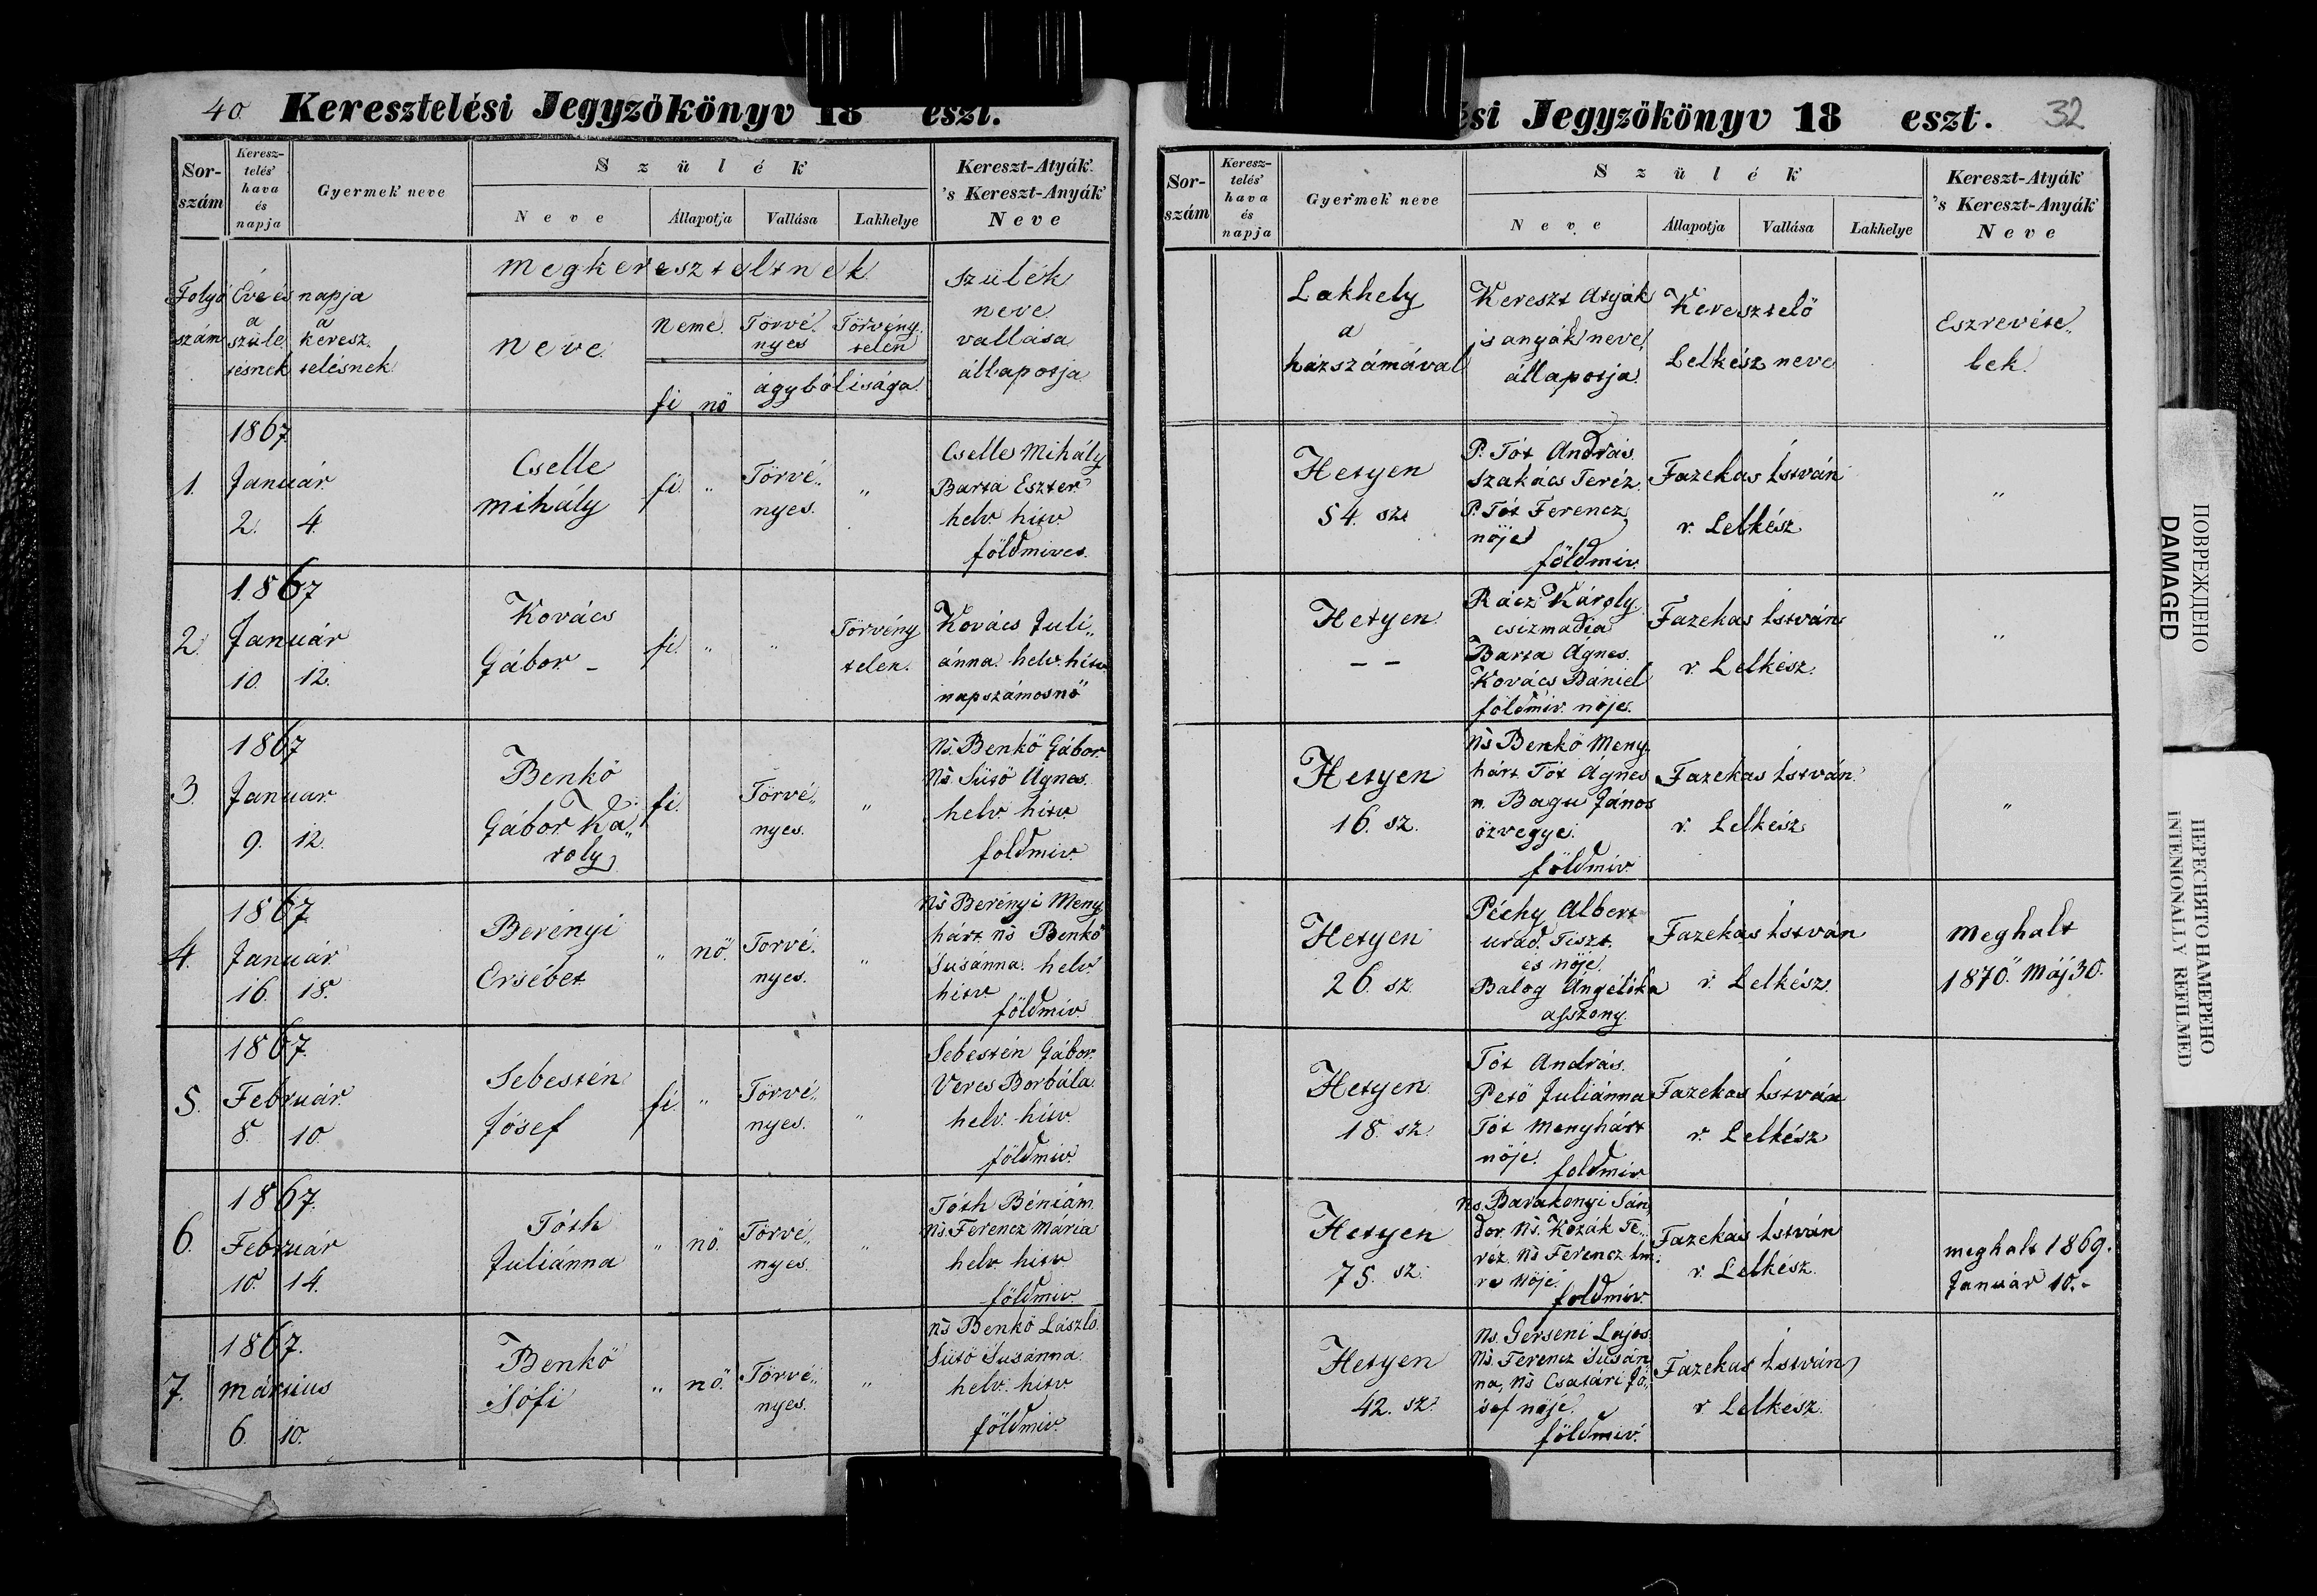 40.
Keresztelési Jegyzökönyv 18 eszt.
Sor-
szám
Keresz-
telés'
hava
és
napja
Gyermek neve
Szülék
Neve
Állapotja
Vallása
Lakhelye
Kereszt-Atyák
's Kereszt-Anyák
Neve
Folyó
szám
Éve és napja
a a
szüle keresz.
tésnek telésnek
megkereszteltnek
neve.
neme.
fi nö
Törvé.
nyes
Törvény.
telen
ágybólisága.
szülék
neve
vallása
állapotja
1.
1867
Január.
2. 4.
Cselle
mihály
fi. „
Törvé„
nyes.
„
Cselle Mihály
Barta Eszter.
helv. hitv.
földmives.
2.
1867
Január
10. 12.
Kovács
Gábor. –
fi. „
„
Törvény
telen.
Kovács Juli„
ánna. helv. hitv.
napszámosnö
3.
1867
Januar.
9. 12.
Benkö
Gábor. Ká„
roly
fi.
Törvé„
nyes.
„
Ns. Benkö Gábor.
Ns Sütö Ágnes.
helv. hitv
foldmiv.
4.
1867
Január.
16. 18.
Berényi
Ersébet
„ nö.
Torvé„
nyes.
„
Ns Berényi Meny
hárt. ns Benkö
Susánna. helv.
hitv
földmiv.
5.
1867.
Február.
8. 10.
Sebestén
Jósef
fi. „
Törvé„
nyes.
„
Sebestén Gábor.
Veres Borbála.
helv. hitv.
földmiv.
6.
1867.
Február
10. 14.
Tóth
Juliánna
„ nö.
Törvé„
nyes.
„
Tóth Béniám.
Ns. Ferencz Mária
helv hitv
földmiv.
7.
1867.
mártius
6. 10.
Benkö
Sófi
„ nö.
Törvé„
nyes.
„
ns Benkö László.
Sütö Susánna.
helv. hitv.
földmiv.
ési Jegyzökönyv 18 eszt.
32
Sor-
szám
Keresz-
telés'
hava
és
napja
Gyermek neve
Szülék
Neve
Állapotja
Vallása
Lakhelye
Kereszt-Atyák
's Kereszt-Anyák
Neve
Lakhely
a
házszámával
Kereszt Atyák
's anyák neve,
állapotja.
Keresztelö
Lelkész neve
Eszrevéte„
lek.
Hetyen
54. sz.
P. Tót András.
Szakács Teréz.
P. Tót Ferencz
nöje
földmiv.
Fazekas István
r. Lelkész
„
Hetyen.
– –
Rácz Károly.
csizmadia
Barta Ágnes.
Kovács Dániel
földmiv. nöje.
Fazekas István
r. Lelkész.
„
Hetyen
16. sz.
Ns Benkö Meny
hárt Tót Ágnes
n. Bagu János
özvegye.
földmiv.
Fazekas István.
r. Lelkész
„
Hetyen
26. sz.
Péchy Albert
urad. Tiszt.
és nöje.
Balog Angélika
asszony.
Fazekas István
r. Lelkész.
Meghalt
1870. Máj 30.
Hetyen.
18. sz.
Tót András.
Petö Juliánna
Tót Menyhárt
nöje.
foldmiv
Fazekas István
r. Lelkész
Hetyen
75. sz.
Ns. Barakonyi Sán,
dor. Ns. Kozák Te„
réz. Ns Ferencz Im„
re nöje.
foldmiv.
Fazekas István
r. Lelkész.
meghalt 1869.
Január 10. –
Hetyen
42. sz.
Ns. Gerseni Lajos.
Ns. Ferencz Susán
na, Ns Csatári Jó„
sef nöje.
földmiv.
Fazekas István
r. Lelkész.
ПОВРЕЖДЕНО
DAMAGED
ПЕРЕСНЯТО НАМЕРЕНО
INTENIONALLY REFILMED